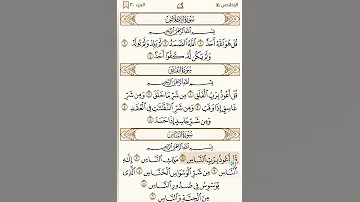 الإخلاص
الجزء ٣٠
سُورَةُ الإِخْلَاصِ
بِسْمِ اللَّهِ الرَّحْمَٰنِ الرَّحِيمِ
قُلْ هُوَ اللَّهُ أَحَدٌ ١ اللَّهُ الصَّمَدُ ٢ لَمْ يَلِدْ وَلَمْ يُولَدْ ٣
وَلَمْ يَكُن لَّهُ كُفُوًا أَحَدٌ ٤
سُورَةُ الفَلَقِ
بِسْمِ اللَّهِ الرَّحْمَٰنِ الرَّحِيمِ
قُلْ أَعُوذُ بِرَبِّ الْفَلَقِ ١ مِن شَرِّ مَا خَلَقَ ٢ وَمِن شَرِّ
غَاسِقٍ إِذَا وَقَبَ ٣ وَمِن شَرِّ النَّفَّاثَاتِ فِي الْعُقَدِ ٤
وَمِن شَرِّ حَاسِدٍ إِذَا حَسَدَ ٥
سُورَةُ النَّاسِ
بِسْمِ اللَّهِ الرَّحْمَٰنِ الرَّحِيمِ
قُلْ أَعُوذُ بِرَبِّ النَّاسِ ١ مَلِكِ النَّاسِ ٢ إِلَٰهِ
النَّاسِ ٣ مِن شَرِّ الْوَسْوَاسِ الْخَنَّاسِ ٤ الَّذِي
يُوَسْوِسُ فِي صُدُورِ النَّاسِ ٥
مِنَ الْجِنَّةِ وَالنَّاسِ ٦